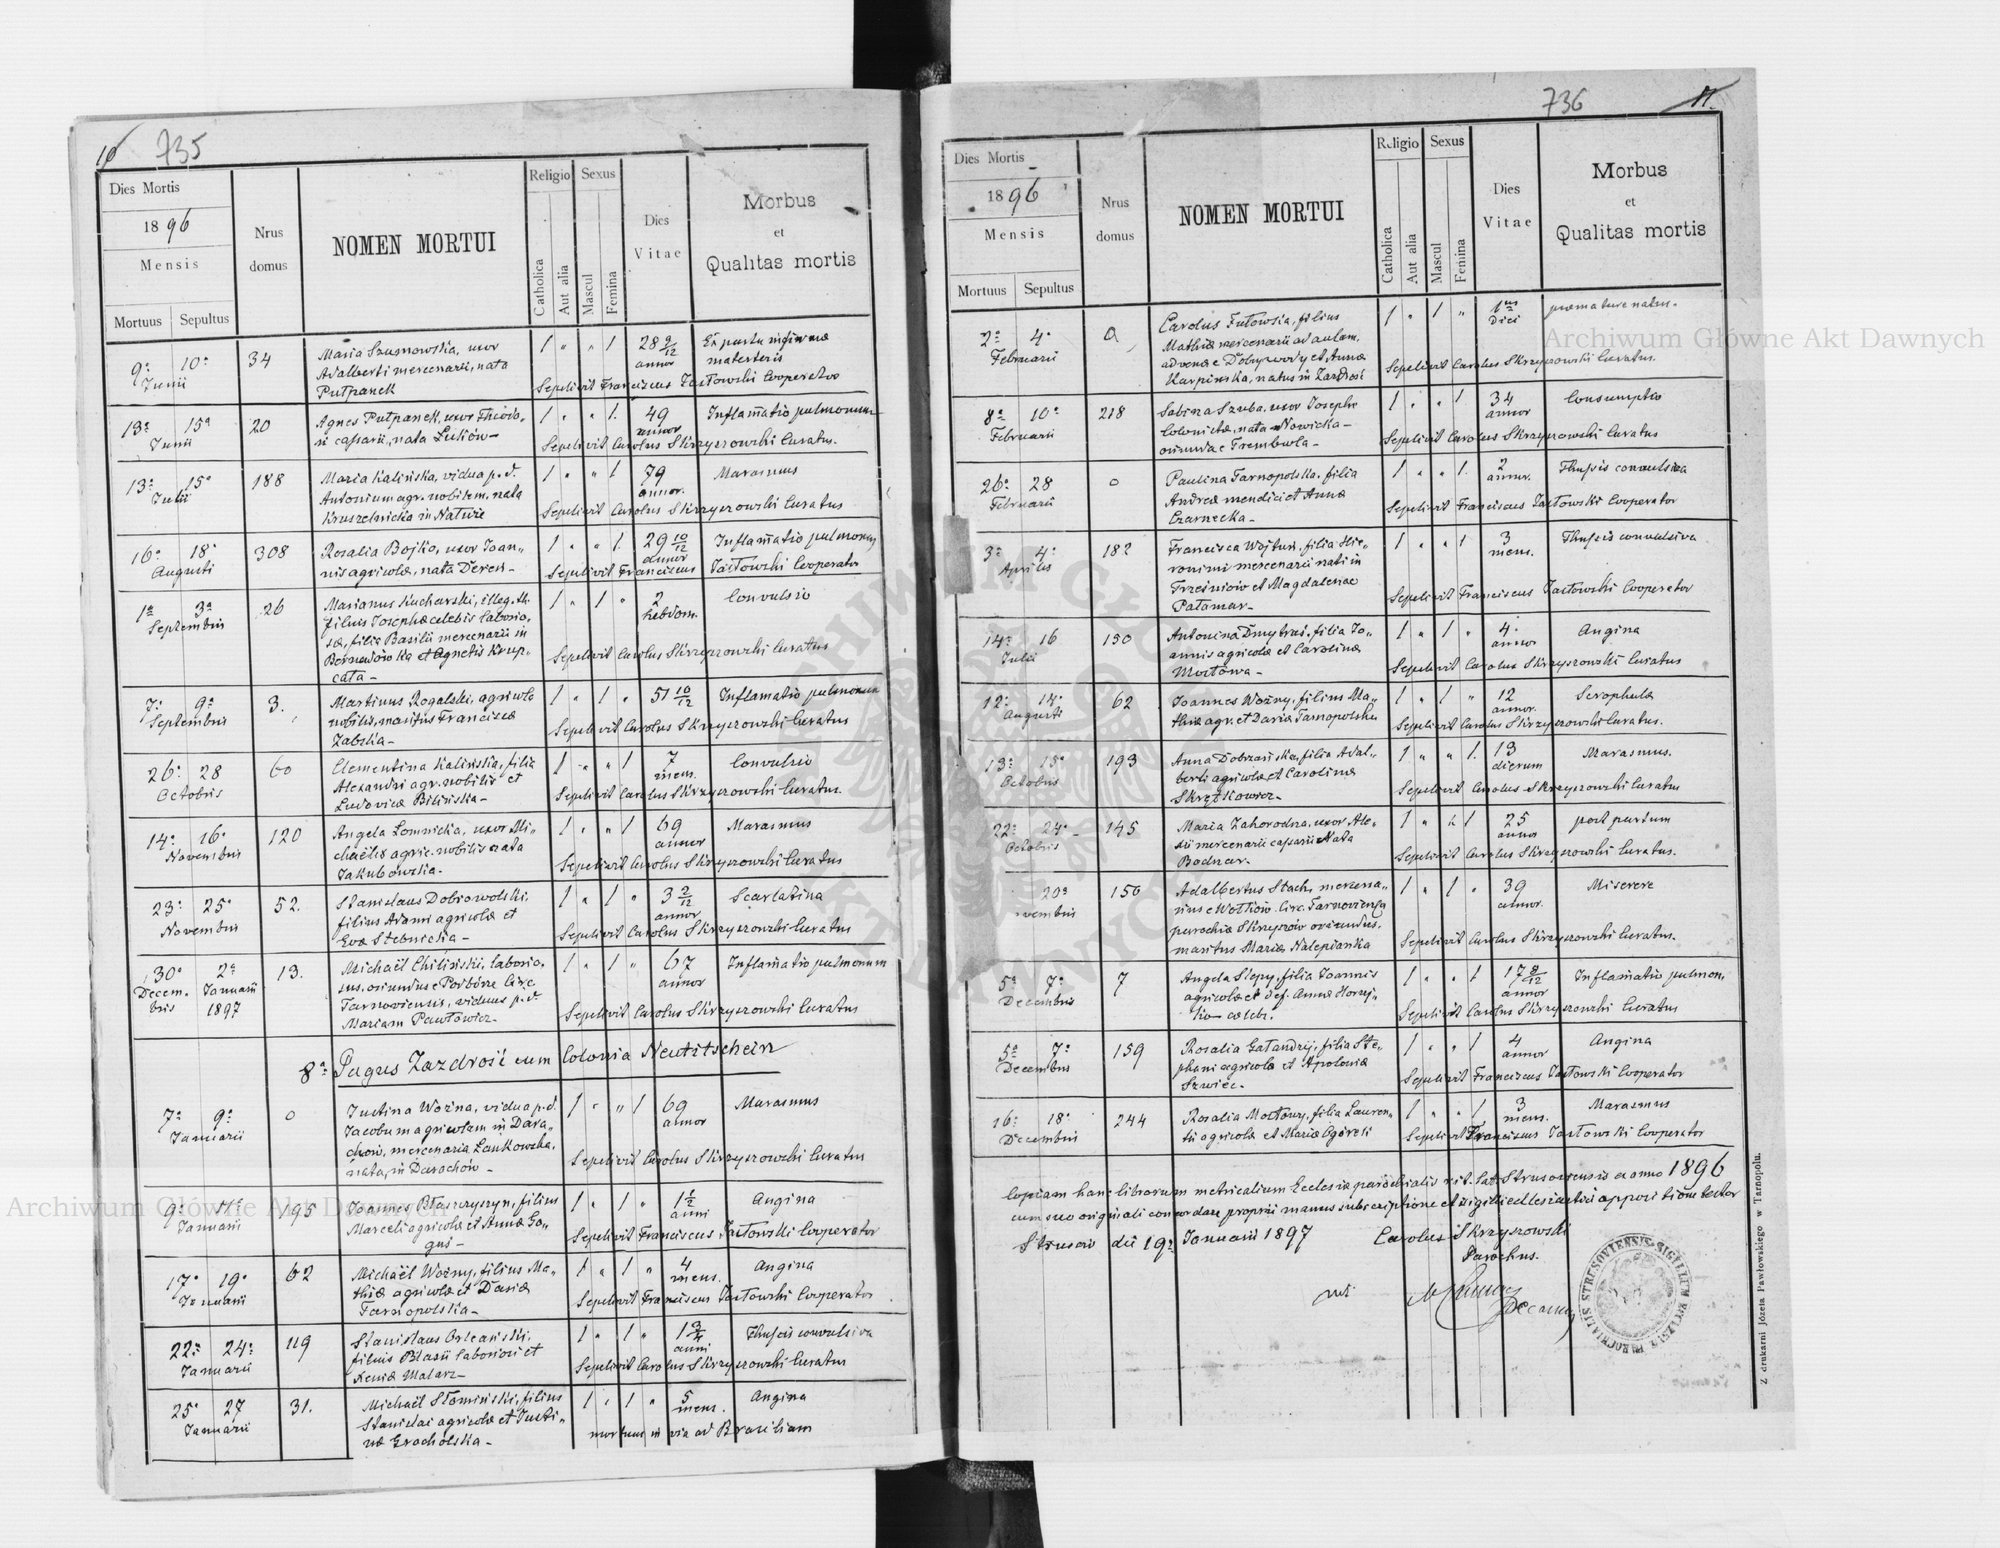 10 735
Dies Mortis
1896
Mensis
Mortuus Sepultus
Nrus domus
NOMEN MORTUI
Religio
Catholica
Aut alia
Sexus
Mascul
Femina
Dies Vitae
Morbus
et
Qualitas mortis
9a 10a Junii 34
Maria Szumowska, uxor
Adalberti mercenarii, nata
Putpanek
1 " " 1 28 9/12 annor
Ex partu
Sepelivit Franciscus Jastowski Cooperator
13a 15a Junii 20
Agnes Putpanek, uxor Theodo-
ri cassarii, nata Luków-
1 " " 1. 49 annor
Inflamatio pulmonum
Sepelivit Carolus Skrzyszowski Curatus.
13a 15a Julii 188
Maria Kalinska, vidua p. d.
Antonium agr. nobilem, nata
Kruszelnicka in
1 " " 1. 79 annor.
Marasmus
Sepelivit Carolus Skrzyszowski Curatus
16a 18a Augusti 308
Rosalia Bojko, uxor Joan-
nis agricolae, nata Deren-
1 " " 1. 29 10/12 annor
Inflamatio pulmonum
Sepelivit Franciscus Jastowski Cooperator
1a 3a Septembris 26
Marianus Kucharski, illeg. th.
filius Josephae caelebis laborio-
sae, filiae Basilii mercenarii in
Bernadówka et Agnetis Krup-
cata-
1 " 1 " 2 hebdom.
Convulsio
Sepelivit Carolus Skrzyszowski Curatus
7a 9a Septembris 3.
Martinus Rogalski, agricola
nobilis, maritus Franciscae
Zabska-
1 " 1 " 51 10/12
Inflamatio pulmonum
Sepelivit Carolus Skrzyszowski Curatus
26a 28 Octobris 60
Clementina Kalinska, filia
Alexandri agr. nobilis et
Ludovicae Bilinska-
1 " " 1 7 mens.
Convulsio
Sepelivit Carolus Skrzyszowski Curatus.
14a 16a Novembris 120
Angela Lomnicka, uxor Mi-
chaëlis agric. nobilis nata
Jakubowska.
1 " " 1 69 annor
Marasmus
Sepelivit Carolus Skrzyszowski Curatus
23a 25a Novembris 52.
Stanislaus Dobrowolski,
filius Adami agricolae et
Evae Stebnicka-
1 " 1 " 3 2/12 annor.
Scarlatina
Sepelivit Carolus Skrzyszowski Curatus
30a Decembris 2a Januarii 1897 13.
Michaël Chiliński, laborio-
sus, oriundus e Podbórze Circ.
Tarnoviensis, viduus p. d.
Mariam Pawłowicz-
1 " 1 " 67 annor
Inflamatio pulmonum
Sepelivit Carolus Skrzyszowski Curatus
8a Pagus Zazdrość cum Colonia Neutitschein
7a 9a Januarii 0
Justina Woźna, vidua p. d.
Jacobum agricolam in Dara-
chów, mercenaria, Lankowska,
nata in Darachów-
1 " " 1 69 annor
Marasmus
Sepelivit Carolus Skrzyszowski Curatus
9a 11a Januarii 195
Joannes Błaszczyszyn, filius
Marceli agricolae et Annae Go-
guś-
1 " 1 " 1 1/2 anni
Angina
Sepelivit Franciscus Jastowski Cooperator
17a 19a Januarii 62
Michaël Woźny, filius Ma-
thiae agricolae et Dariae
Tarnopolska-
1 " 1 " 4 mens.
Angina
Sepelivit Franciscus Jastowski Cooperator
22a 24a Januarii 119
Stanislaus Orleański,
filius Blasii laboriosi et
Xeniae Malarz-
1 " 1 " 1 3/4 anni
Thussis convulsiva
Sepelivit Carolus Skrzyszowski Curatus
25a 27 Januarii 31.
Michaël Słomiński, filius
Stanislai agricolae et Justi-
nae Grocholska-
1 " 1 " 5 mens.
Angina
mortuus in via ad Braziliam
736 11.
Dies Mortis
1896
Mensis
Mortuus Sepultus
Nrus domus
NOMEN MORTUI
Religio
Catholica
Aut alia
Sexus
Mascul
Femina
Dies Vitae
Morbus
et
Qualitas mortis
2a 4a Februarii 0
Carolus Futowsia, filius
Mathiae mercenarii ad aulam,
advenae e Dobrywody et Annae
Karpinska, natus in Zazdrość
1 " 1 " 1us Diei
praemature natus.
Sepelivit Carolus Skrzyszowski Curatus.
8a 10a Februarii 218
Sabina Szuba, uxor Josephi
Colonistae, nata Nowicka-
oriunda e Trembowla-
1 " " 1 34 annor
Consumptio
Sepelivit Carolus Skrzyszowski Curatus
26a 28 Februarii 0
Paulina Tarnopolska, filia
Andreae mendici et Annae
Czarnecka-
1 " " 1. 2 annor.
Thussis convulsiva
Sepelivit Franciscus Jastowski Cooperator
3a 4a Aprilis 182
Francisca Wojtun, filia Hie-
ronimi mercenarii nati in
Trześniów et Magdalenae
Patamar-
1 " " 1 3 mens.
Thussis convulsiva
Sepelivit Franciscus Jastowski Cooperator
14a 16 Julii 130
Antonina Dmytraś, filia Jo-
annis agricolae et Carolinae
Mostowa-
1 " 1 " 4 annor
Angina
Sepelivit Carolus Skrzyszowski Curatus
12a 14a Augusti 62
Joannes Woźny, filius Ma-
thiae agr. et Dariae Tarnopolska
1 " 1 " 12 annor.
Scrophulae
Sepelivit Carolus Skrzyszowski Curatus.
13a 15a Octobris 193
Anna Dobrzańska, filia Adal-
berti agricolae et Carolinae
Skrzetkowicz-
1 " " 1. 13 dierum
Marasmus.
Sepelivit Carolus Skrzyszowski Curatus
22a 24a Octobris 145
Maria Zahorodna, uxor Ale-
xii mercenarii cassarii Nata
Bodnar.
1 " " 1 25 annor
post partum
Sepelivit Carolus Skrzyszowski Curatus.
20a vembris 150
Adalbertus Stach, mercena-
rius e Circ. Tarnoviensis
parochia Skrzyszów oriundus,
maritus Mariae Nalepianka
1 " 1 " 39 annor.
Miserere
Sepelivit Carolus Skrzyszowski Curatus.
5a 7a Decembris 7
Angela Slepy, filia Joannis
agricolae et def. Annae
caeleb.
1 " " 1 17 8/12 annor
Inflamatio pulmon.
Sepelivit Carolus Skrzyszowski Curatus
5a 7a Decembris 159
Rosalia Gatandzij, filia Ste-
phani agricolae et Apoloniae
Szwiec-
1 " " 1 4 annor
Angina
Sepelivit Franciscus Jastowski Cooperator
16a 18a Decembris 244
Rosalia Mostowy, filia Lauren-
tii agricolae et Mariae
1 " " 1 3 mens.
Marasmus
Sepelivit Franciscus Jastowski Cooperator
Copiam hanc librorum metricalium Ecclesiae parochialis rit. lat. Strusoviensis ex anno 1896
cum suo originali concordare propriae manus subscriptione et sigilli ecclesiastici appositione testor
Strusow die 19a Januarii 1897 Carolus Skrzyszowski
Parochus.
Decanus
Z drukarni Józefa Pawłowskiego w Tarnopolu.
Archiwum Główne Akt Dawnych
Archiwum Główne Akt Dawnych